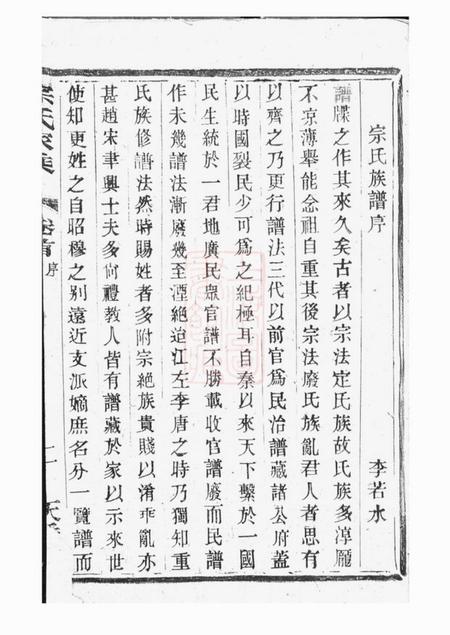 宗氏族譜序
李若水
譜牒之作其來久矣古者以宗法定氏族故氏族多淳龐
不凉薄舉能念祖自重其後宗法廢氏族亂君人者思有
以齊之乃更行譜法三代以前官爲民治譜藏諸公府蓋
以時國裂民少可爲之紀極耳自秦以來天下繫於一國
民生統於一君地廣民眾官譜不勝載收官譜廢而民譜
作未幾譜法漸廢幾至湮絕迨江左李唐之時乃獨知重
氏族修譜法然時賜姓者多附宗絕族貴賤以淆乖亂亦
甚趙宋聿興士夫多尙禮教人皆有譜藏於家以示來世
使知更姓之自昭穆之别遠近支派嫡庶名分一覽譜而
宗氏家乘
卷首
序
二